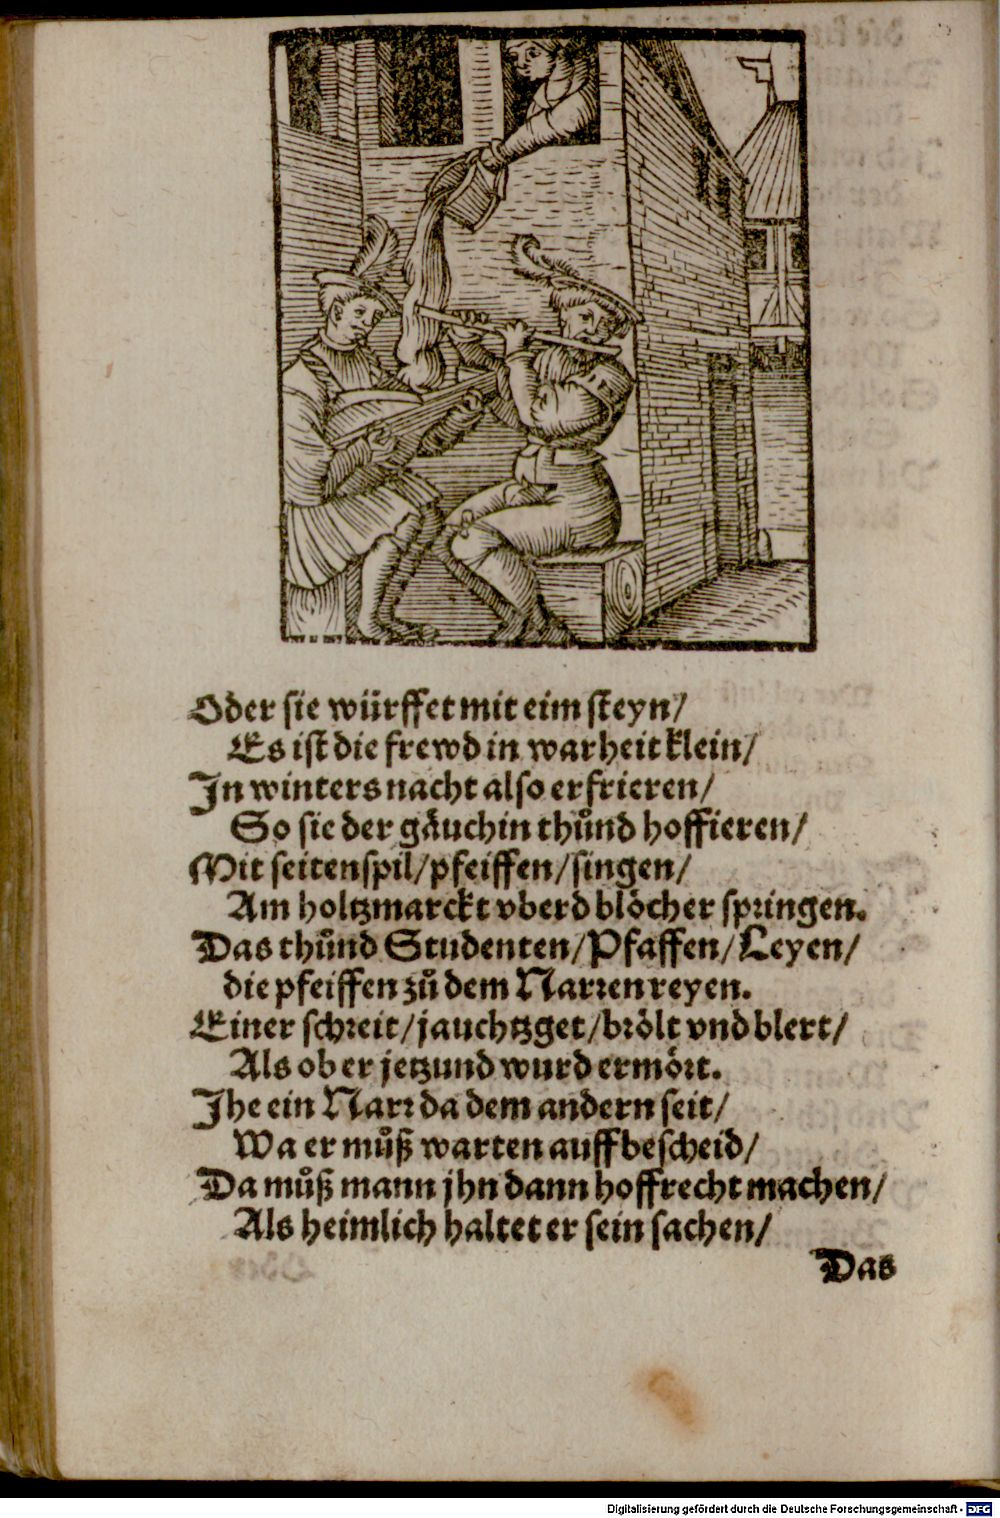 Oder sie würffet mit eim steyn/
Es ist die frewd in warheit klein/
In winters nacht also erfrieren/
So sie der gäuchin thůnd hoffieren/
Mit seitenspil/pfeiffen/singen/
Am holtzmarckt vberd blöcher springen.
Das thůnd Studenten/Pfaffen/Leyen/
die pfeiffen zů dem Narren reyen.
Einer schreit/jauchtzget/brölt vnd blert/
Als ob er jetzund wurd ermört.
Jhe ein Narr da dem andern seit/
Wa er můß warten auff bescheid/
Da můß mann jhn dann hoffrecht machen/
Als heimlich haltet er sein sachen/
Das
Digitalisierung gefördert durch die Deutsche Forschungsgemeinschaft - DFG